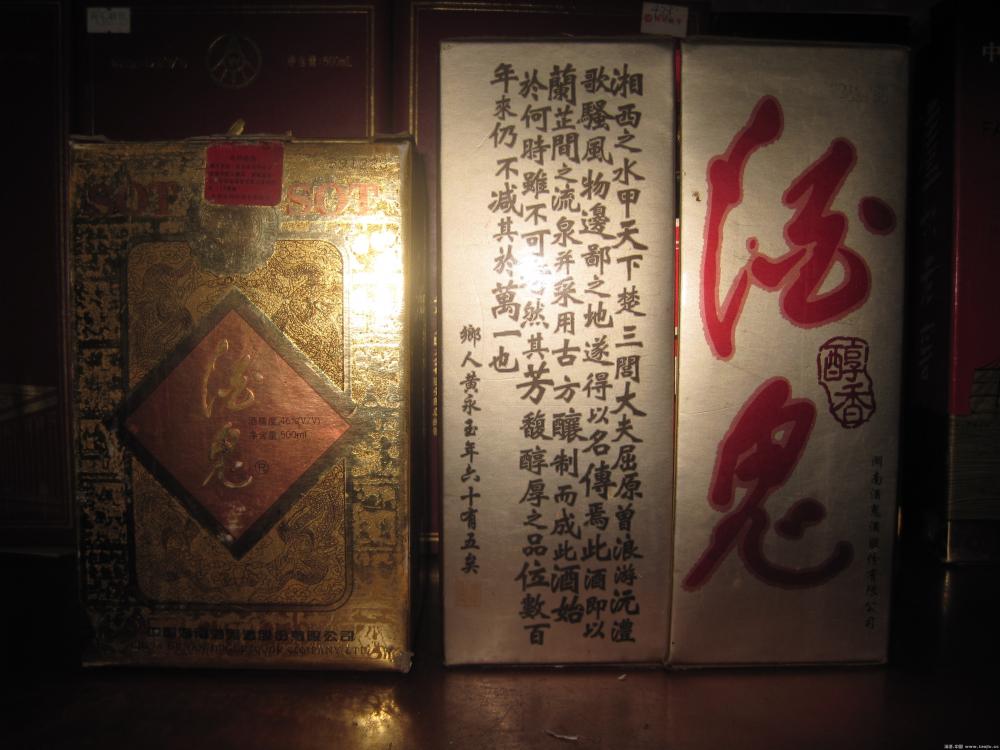 净含量:500mL
SOT SOT
酒鬼
酒精度:46%(V/V)
净含量:500ml
®
湘西之水甲天下楚三閭大夫屈原曾浪游沅澧
歌騷風物邊鄙之地遂得以名傳焉此酒即以
蘭芷間之流泉并采用古方釀制而成此酒始
於何時雖不可 然其芳馥醇厚之品位數百
年來仍不减其於萬一也
鄉人黃永玉年六十有五矣
酒鬼
醇香
湖南酒鬼酒股份有限公司